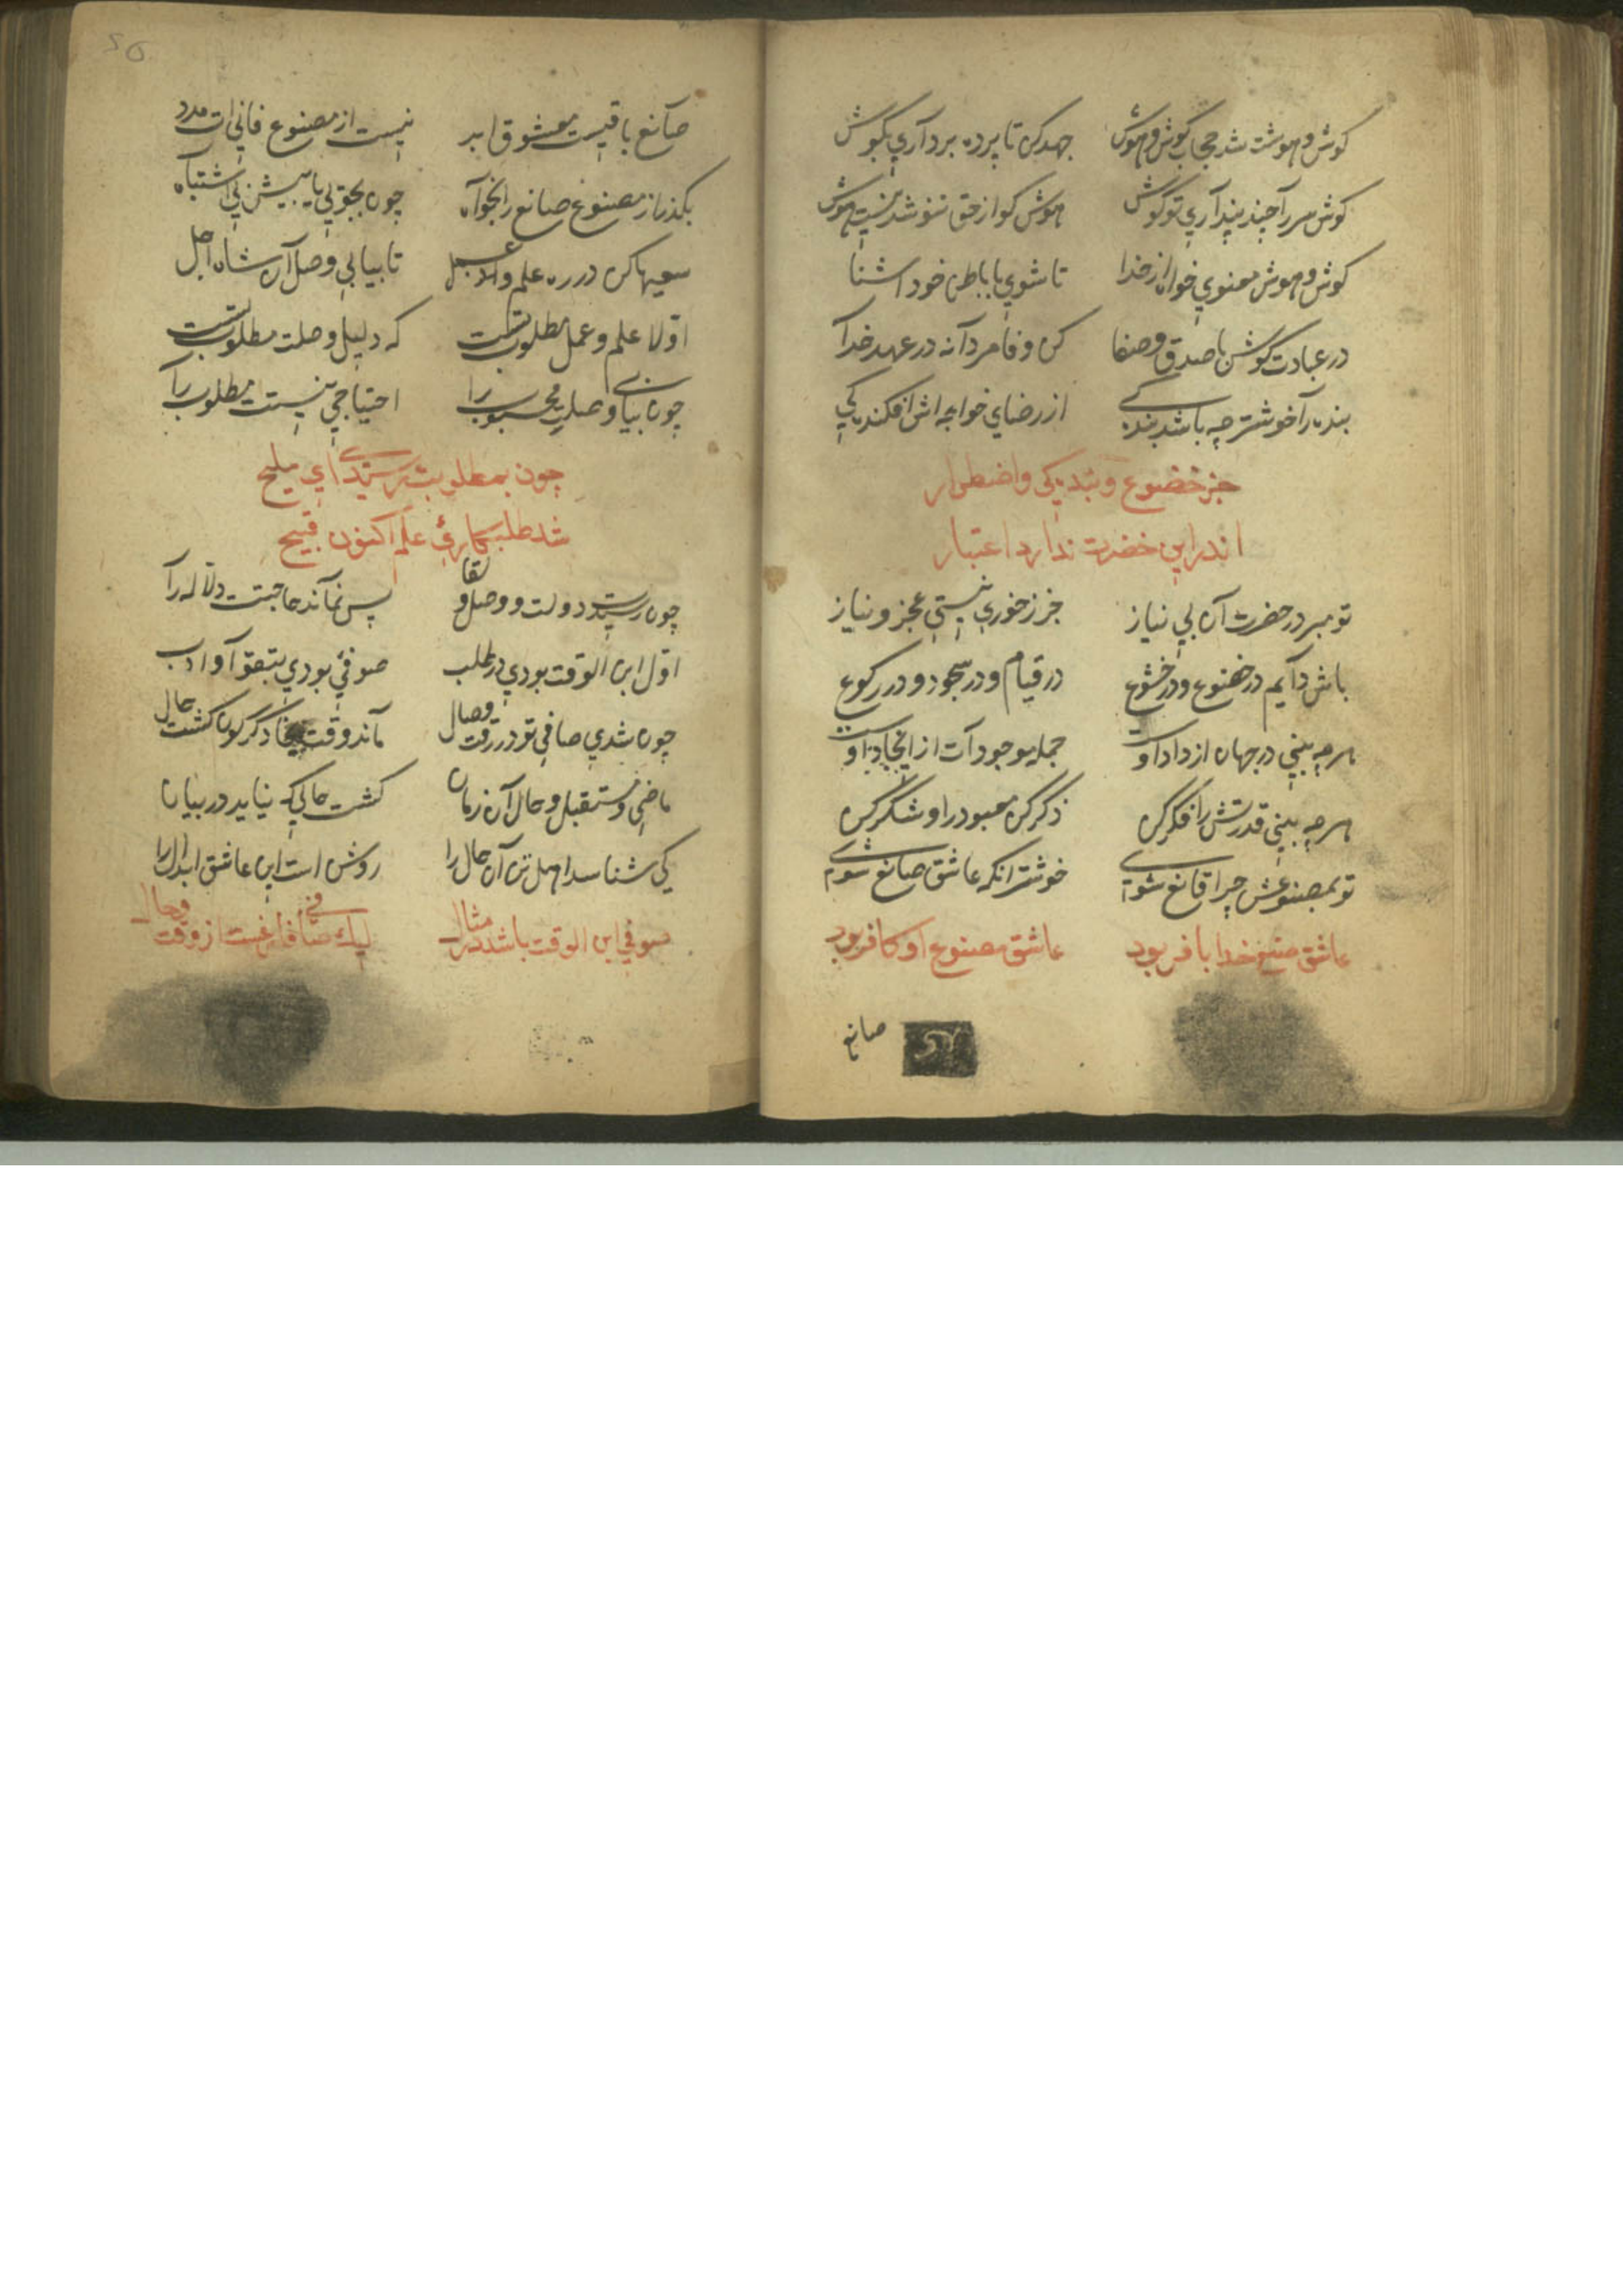 كوش و هوشت شد حجاب كوش و هوش جهد كن تا پرده بردآري بگوش
كوش سر را چند پندآري تو كوش هوش كو از حق نشد نيست هوش
كوش و هوش معنوي خواه از خدا تا شوي با باطن خود اشنا
در عبادت كوش با صدق و صفا كن وفا مردآنه در عهد خدآ
بنده را خوشتر چه باشد بندكي از رضاي خواجه اش افكندكي
جز خضوع و بندكي و اضطرار
اندر اين حضرت ندارد اعتبار
تو مبر در حضرت آن بي نياز جز ز خود نيستي عجز و نياز
باش دآيم در خضوع و در خشوع در قيام و در سجود و در ركوع
هرچه بيني در جهان از داد اوست جمله موجودات از ايجاد اوست
هرچه بيني قدرتش را فكر كن ذكر كن معبود را و شكر كن
تو بمصنوعش چرا قانع شوي خوشتر انكه عاشق صانع شوي
عاشق صنع خدا با فر بود عاشق مصنوع او كافر بود
صانع
صآنع باقيست معشوق ابد نيست از مصنوع فاني ات مدد
بكذر از مصنوع صانع را بخوآه چون بجوئي يابيش بي اشتباه
سعيها كن در ره علم و عمل تا بيابي وصل آن شاه اجل
اوّلا علم و عمل مطلوب تست كه دليل وصلت مطلوب تست
چون بيابي وصلت محبوب را احتياجي نيست مطلوب را
چون بمطلوبت رسيدي اي مليح
شد طلبكاري علم اكنون قبيح
چون رسيد دولت و وصل و لقا پس نمآند حاجت دلّاله رآ
اوّل ابن الوقت بودي در طلب صوفئي بودي بتقوآ و ادب
چون شدي صافي تو در وقت وصال مآند وقت دكركون كشت حال
ماضي و مستقبل و حال آن زمان كشت حالي كه نيايد در بيان
كي شناسد اهل تن آن حال را روشن است اين عاشق ابدال را
صوفي ابن الوقت باشد در مثال ليك صافي فارغست از وقت و حال